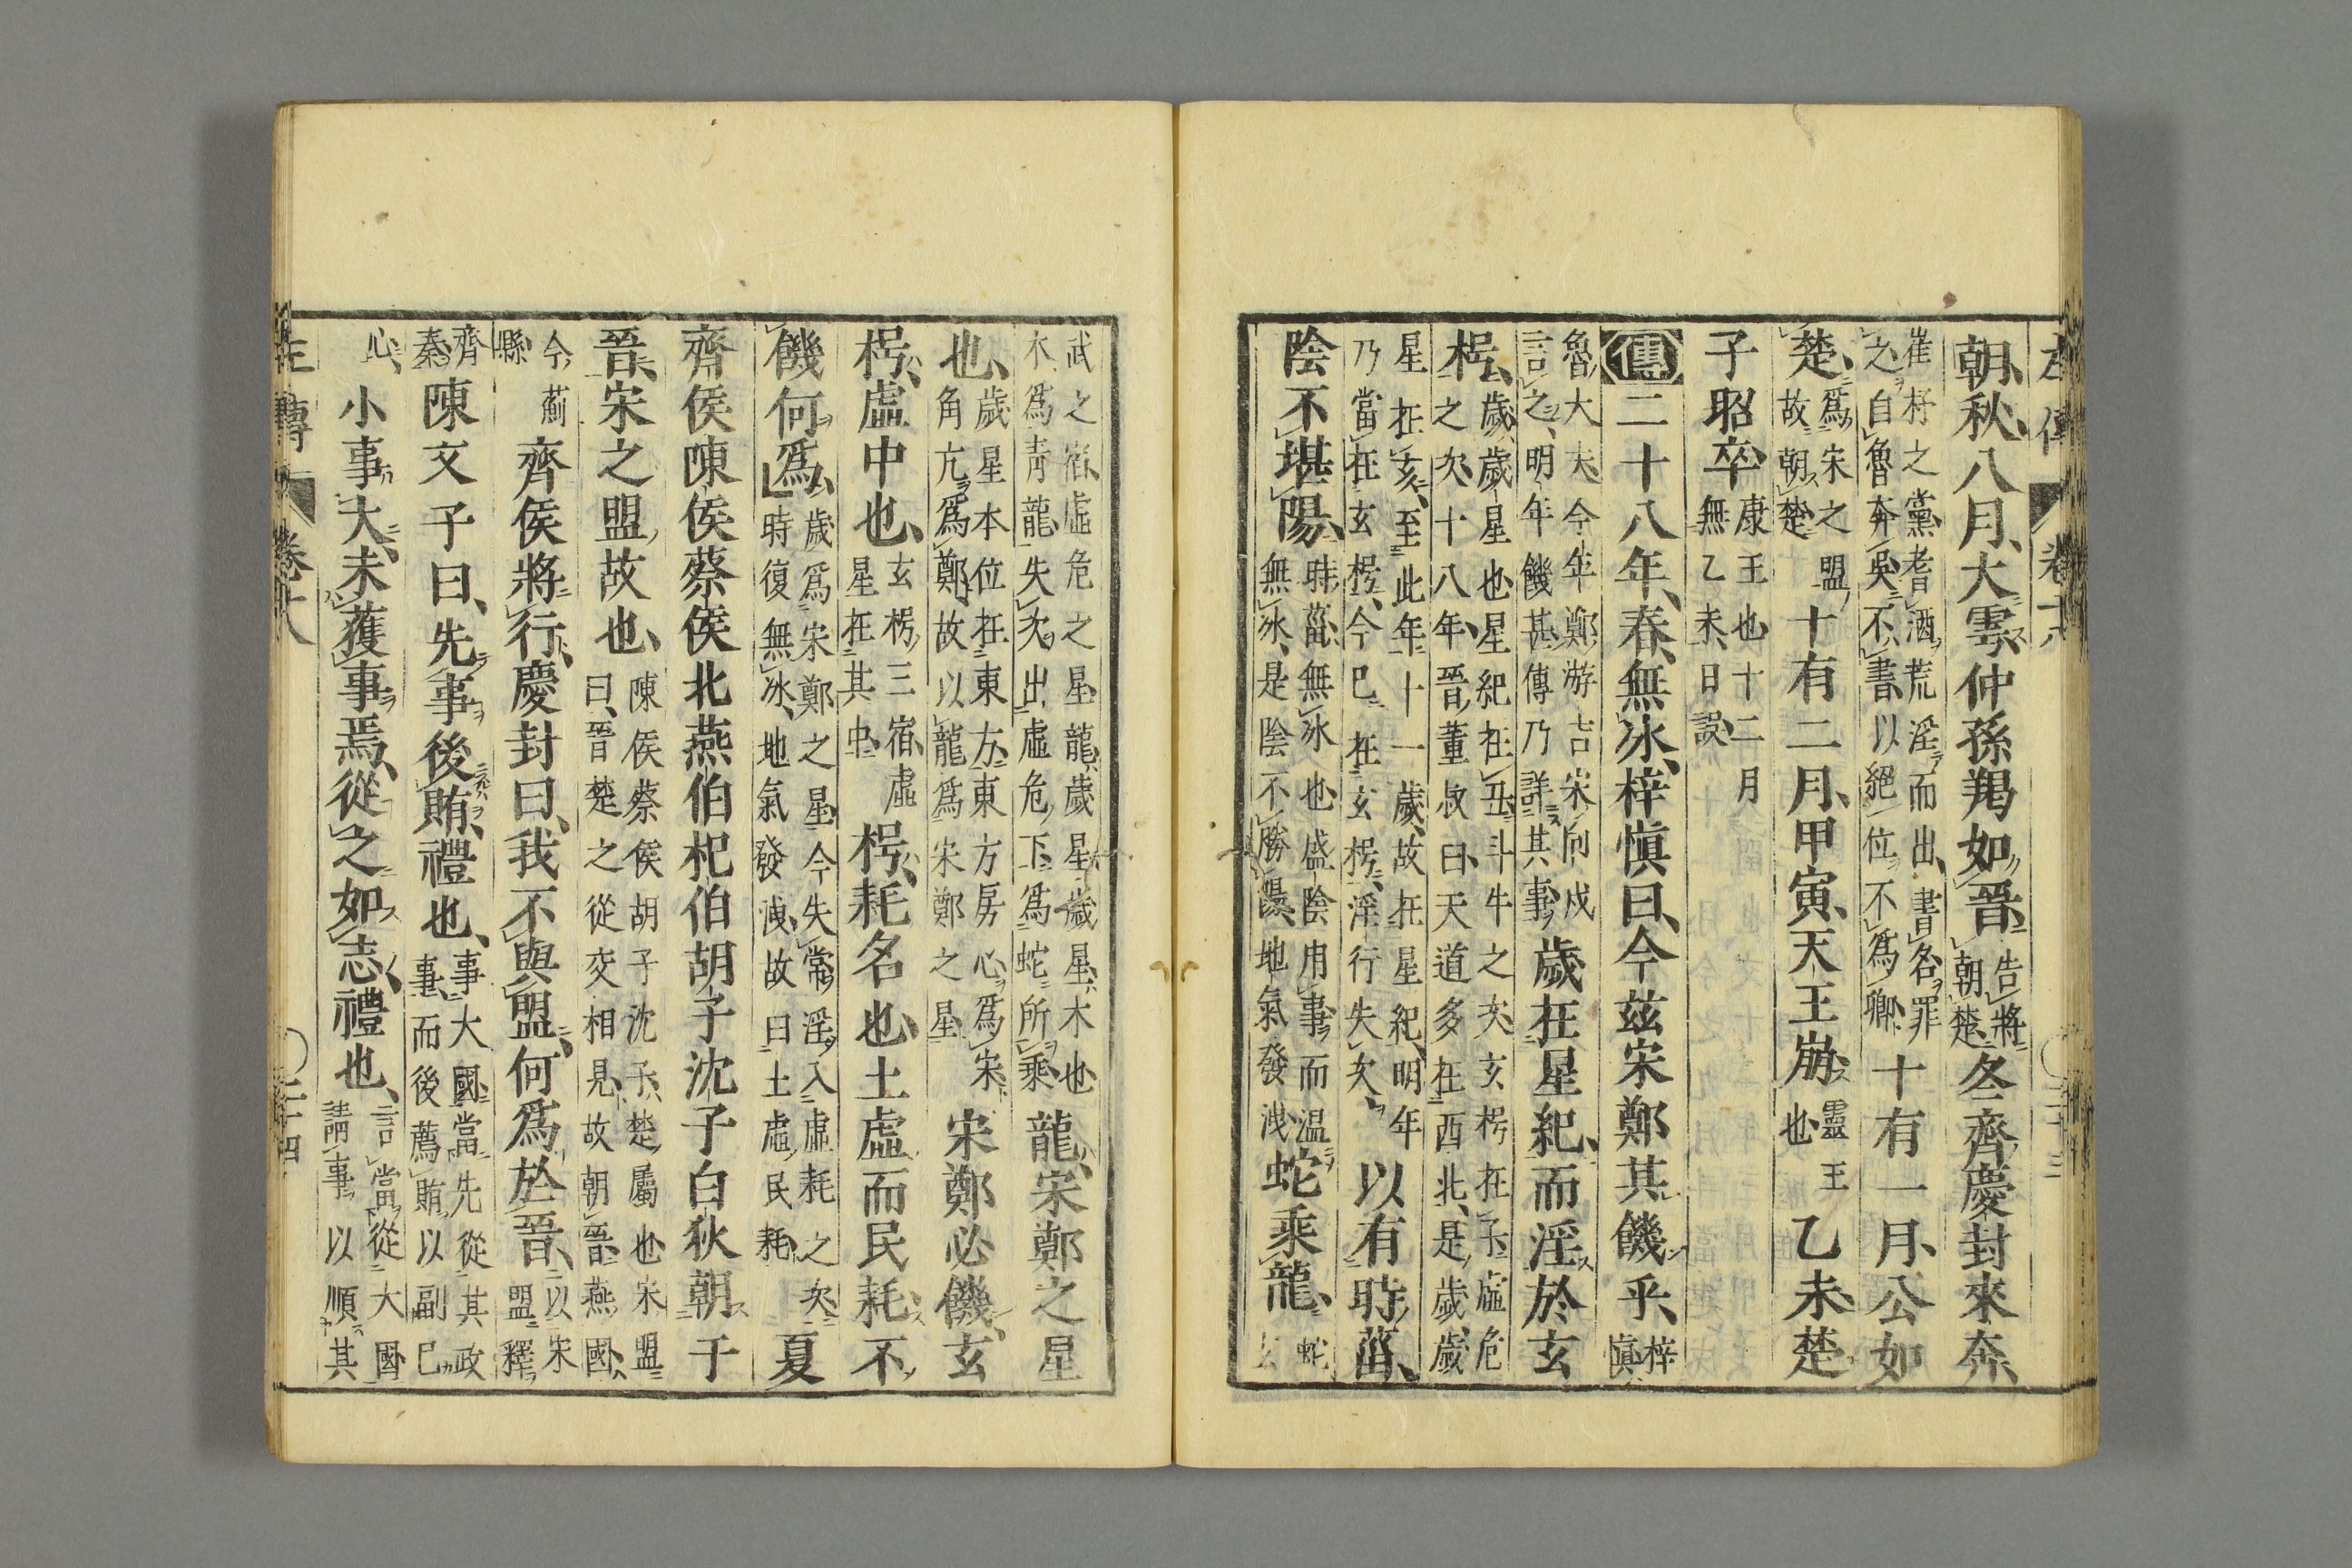 左傳 卷十八 二十三
朝秋八月大雩仲孫羯如晉告將朝楚冬齊慶封來奔
崔杼之黨耆酒荒淫而出書名罪之自魯奔吳不書以絕位不爲卿十有一月公如
楚爲宋之盟故朝楚十有二月甲寅天王崩靈王也乙未楚
子昭卒康王也十二月無乙未日誤
傳二十八年春無冰梓慎曰今茲宋鄭其饑乎梓慎
魯大夫今年鄭游吉宋向戌言之明年饑甚傳乃詳其事歲在星紀而淫於玄
枵歲歲星也星紀在丑斗牛之次玄枵在子虛危之次十八年晉董叔曰天道多在西北是歲歲
星在亥至此年十一歲故在星紀明年乃當在玄枵今已在玄枵淫行失次以有時菑
陰不堪陽時菑無冰也盛陰用事而温無冰是陰不勝陽地氣發洩蛇乘龍蛇玄
武之宿虛危之星龍歲星歲星木也木爲靑龍失次出虛危下爲蛇所乘龍宋鄭之星
也歲星本位在東方東方房心爲宋角亢爲鄭故以龍爲宋鄭之星宋鄭必饑玄
枵虛中也玄枵三宿虛星在其中枵耗名也土虛而民耗不
饑何爲歲爲宋鄭之星今失常淫入虛耗之次時復無冰地氣發洩故曰土虛民耗夏
齊侯陳侯蔡侯北燕伯杞伯胡子沈子白狄朝于
晉宋之盟故也陳侯蔡侯胡子沈子楚屬也宋盟曰晉楚之從交相見故朝晉燕國
今薊縣齊侯將行慶封曰我不與盟何爲於晉以宋盟釋
齊秦陳文子曰先事後賄禮也事大國當先從其政事而後薦賄以副己
心小事大未獲事焉從之如志禮也言當從大國請事以順其
左傳 卷十八 二十四